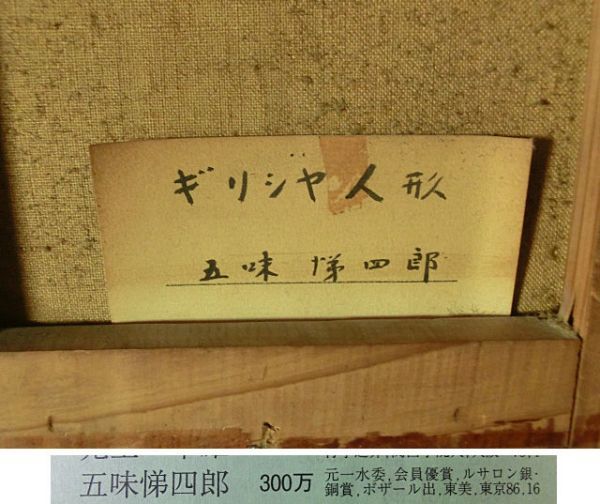 ギリジヤ人形
五味悌四郎
五味悌四郎 300万 元一水委,会員優賞,ルサロン銀・
銅賞,ボザール出,東美,東京86,16